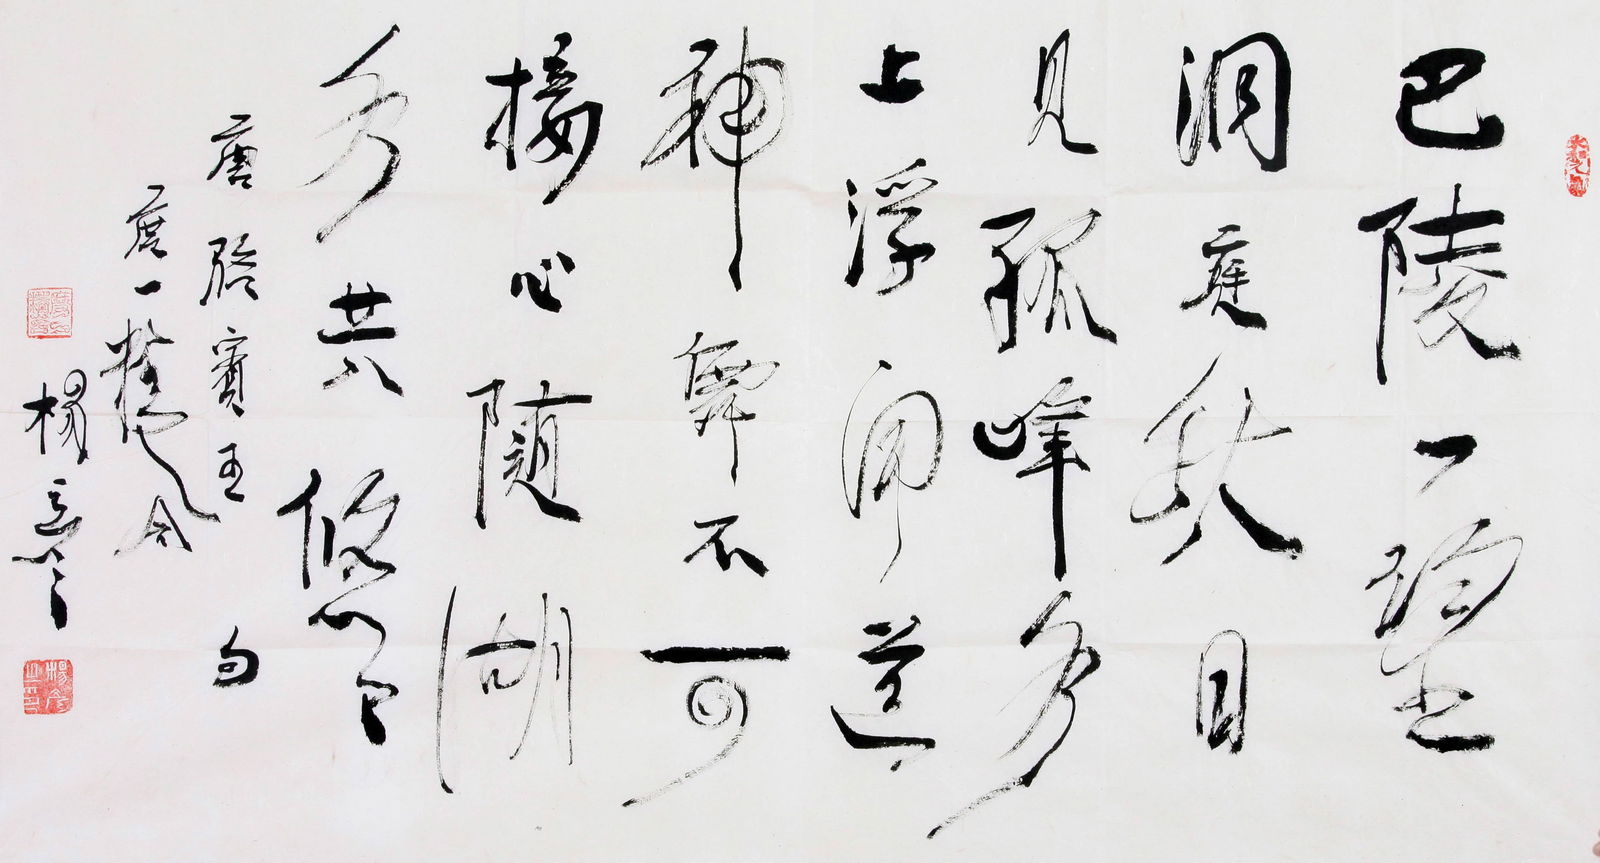 巴陵一望
洞庭秋日
见孤峰水
上浮闻道
神不可
接心随湖
水共悠々
唐骆宾王句
度一
杨